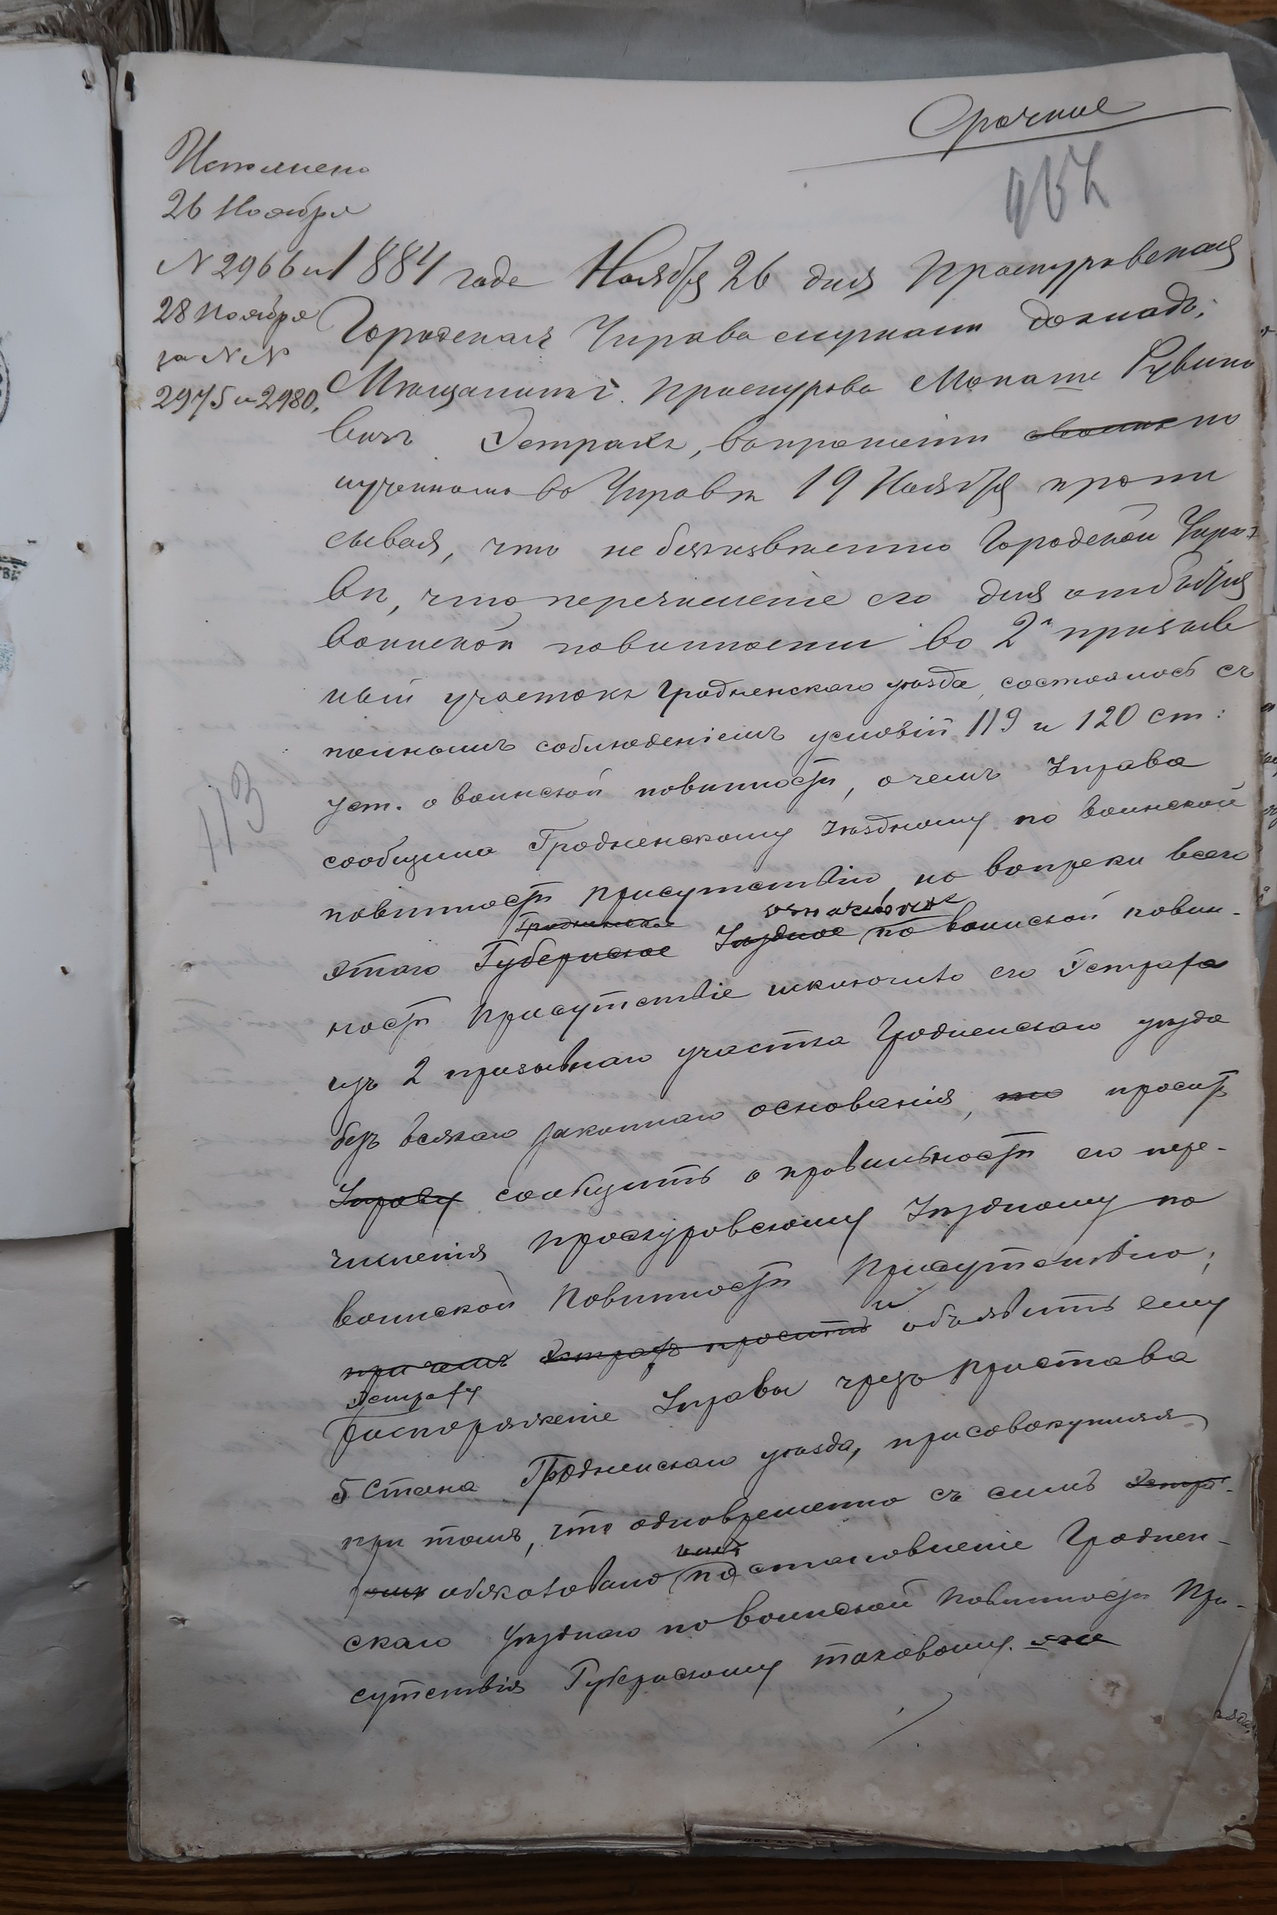 Срочное
Исполнено
26 Ноября
№ 2966 и
28 Ноября
за №№
2975 и 2980.
113
1884 года Ноября 26 дня Проскуровская
Городская Управа слушали доклад:
Мещанинъ г. Проскурова Рувино
вичъ Эстрахъ, въ прошеніи по
лученномъ въ Управѣ 19 Ноября пропи
сывая, что не безъизвѣстно Городской Упра
вѣ, что перечисленіе его для отбытія
воинской повинности во 2й призыв
ный участокъ Гродненскаго уѣзда, состоялось съ
полнымъ соблюденіемъ условій 119 и 120 ст:
уст. о воинской повинности, о чемъ Управа
сообщила Гродненскому Уѣздному по воинской
повинности Присутствію, но вопреки всего
Гродненское означенное
этого Губернское Уѣздное по воинской повин-
ности Присутствіе исключило его Эстраха
изъ 2 призывнаго участка Гродненскаго уѣзда
безъ всякаго законнаго основанія, проситъ
Управу сообщить о правильности его пере-
численія Проскуровскому Уѣздному по
воинской Повинности Присутствію;
при чемъ Эстрахъ проситъ и объявить ему
Эстраху
распоряженіе Управы чрезъ Пристава
5 Стана Гродненскаго уѣзда, присовокупляя
при томъ, что одновременно съ симъ Эстра-
хомъ обжаловано имъ постановленіе Гроднен-
скаго Уѣзднаго по воинской Повинности При-
сутствія Губернскому таковому же